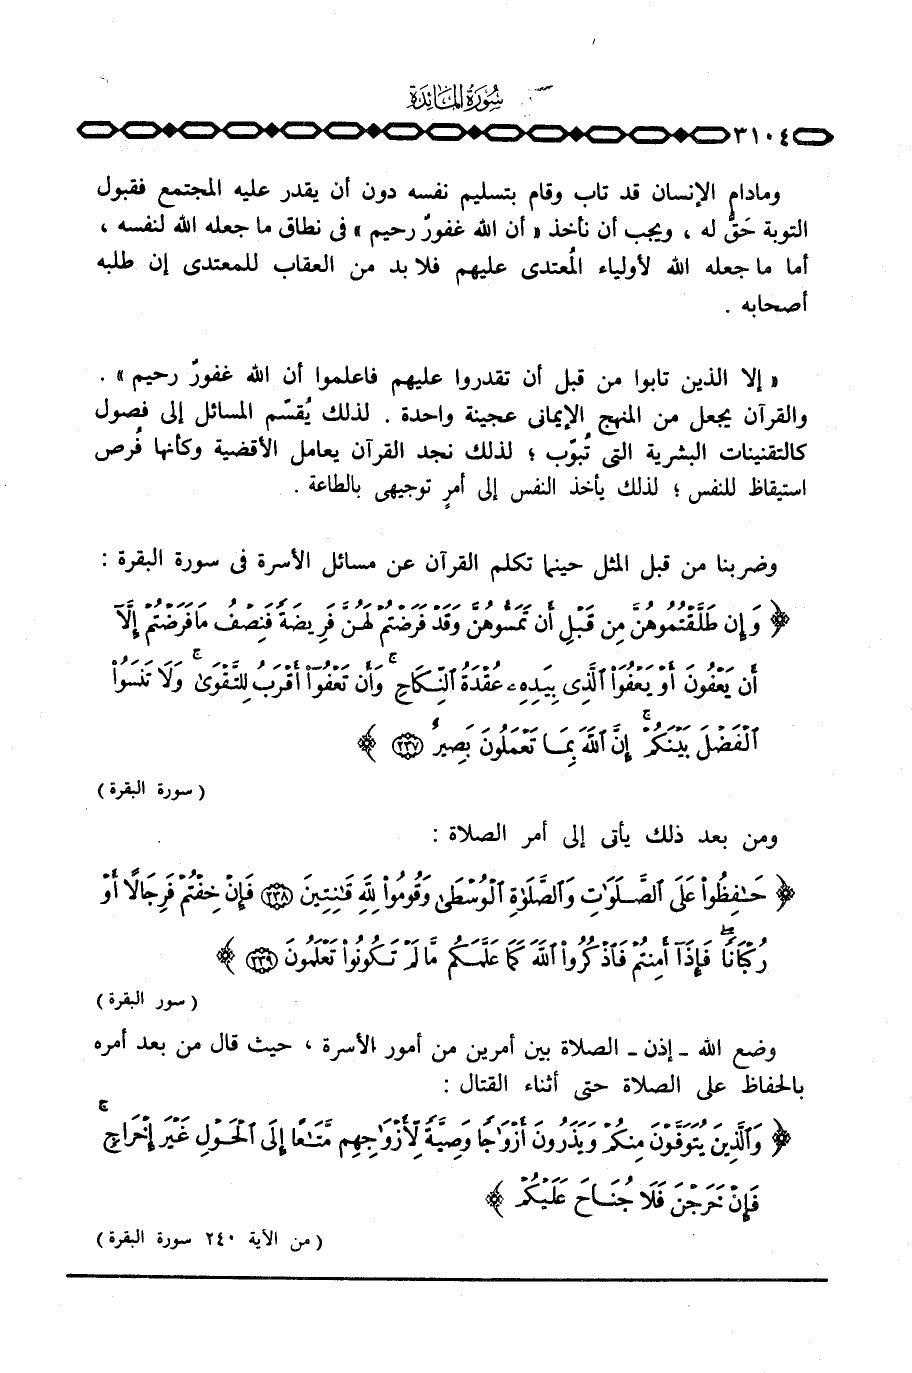 سُورَةُ المَائِدَةِ
٣١٠٤
ومادام الإنسان قد تاب وقام بتسليم نفسه دون أن يقدر عليه المجتمع فقبول
التوبة حَقٌّ له ، ويجب أن نأخذ « أن الله غفورٌ رحيم » فى نطاق ما جعله الله لنفسه ،
أما ما جعله الله لأولياء المُعتدى عليهم فلا بد من العقاب للمعتدى إن طلبه
أصحابه .
« إلا الذين تابوا من قبل أن تقدروا عليهم فاعلموا أن الله غفورٌ رحيم » .
والقرآن يجعل من المنهج الإيمانى عجينة واحدة . لذلك يُقسّم المسائل إلى فصول
كالتقنينات البشرية التى تُبوّب ؛ لذلك نجد القرآن يعامل الأقضية وكأنها فُرص
استيقاظ للنفس ؛ لذلك يأخذ النفس إلى أمرٍ توجيهى بالطاعة .
وضربنا من قبل المثل حينما تكلم القرآن عن مسائل الأسرة فى سورة البقرة :
﴿ وَإِن طَلَّقْتُمُوهُنَّ مِن قَبْلِ أَن تَمَسُّوهُنَّ وَقَدْ فَرَضْتُمْ لَهُنَّ فَرِيضَةً فَنِصْفُ مَا فَرَضْتُمْ إِلَّآ
أَن يَعْفُونَ أَوْ يَعْفُوَا۟ ٱلَّذِى بِيَدِهِۦ عُقْدَةُ ٱلنِّكَاحِ ۚ وَأَن تَعْفُوٓا۟ أَقْرَبُ لِلتَّقْوَىٰ ۚ وَلَا تَنسَوُا۟
ٱلْفَضْلَ بَيْنَكُمْ ۚ إِنَّ ٱللَّهَ بِمَا تَعْمَلُونَ بَصِيرٌ ﴿٢٣٧﴾ ﴾
( سورة البقرة )
ومن بعد ذلك يأتى إلى أمر الصلاة :
﴿ حَـٰفِظُوا۟ عَلَى ٱلصَّلَوَٰتِ وَٱلصَّلَوٰةِ ٱلْوُسْطَىٰ وَقُومُوا۟ لِلَّهِ قَـٰنِتِينَ ﴿٢٣٨﴾ فَإِنْ خِفْتُمْ فَرِجَالًا أَوْ
رُكْبَانًا ۖ فَإِذَآ أَمِنتُمْ فَٱذْكُرُوا۟ ٱللَّهَ كَمَا عَلَّمَكُم مَّا لَمْ تَكُونُوا۟ تَعْلَمُونَ ﴿٢٣٩﴾ ﴾
( سور البقرة )
وضع الله ـ إذن ـ الصلاة بين أمرين من أمور الأسرة ، حيث قال من بعد أمره
بالحفاظ على الصلاة حتى أثناء القتال :
﴿ وَٱلَّذِينَ يُتَوَفَّوْنَ مِنكُمْ وَيَذَرُونَ أَزْوَٰجًا وَصِيَّةً لِّأَزْوَٰجِهِم مَّتَـٰعًا إِلَى ٱلْحَوْلِ غَيْرَ إِخْرَاجٍ ۚ
فَإِنْ خَرَجْنَ فَلَا جُنَاحَ عَلَيْكُمْ ﴾
( من الآية ٢٤٠ سورة البقرة )